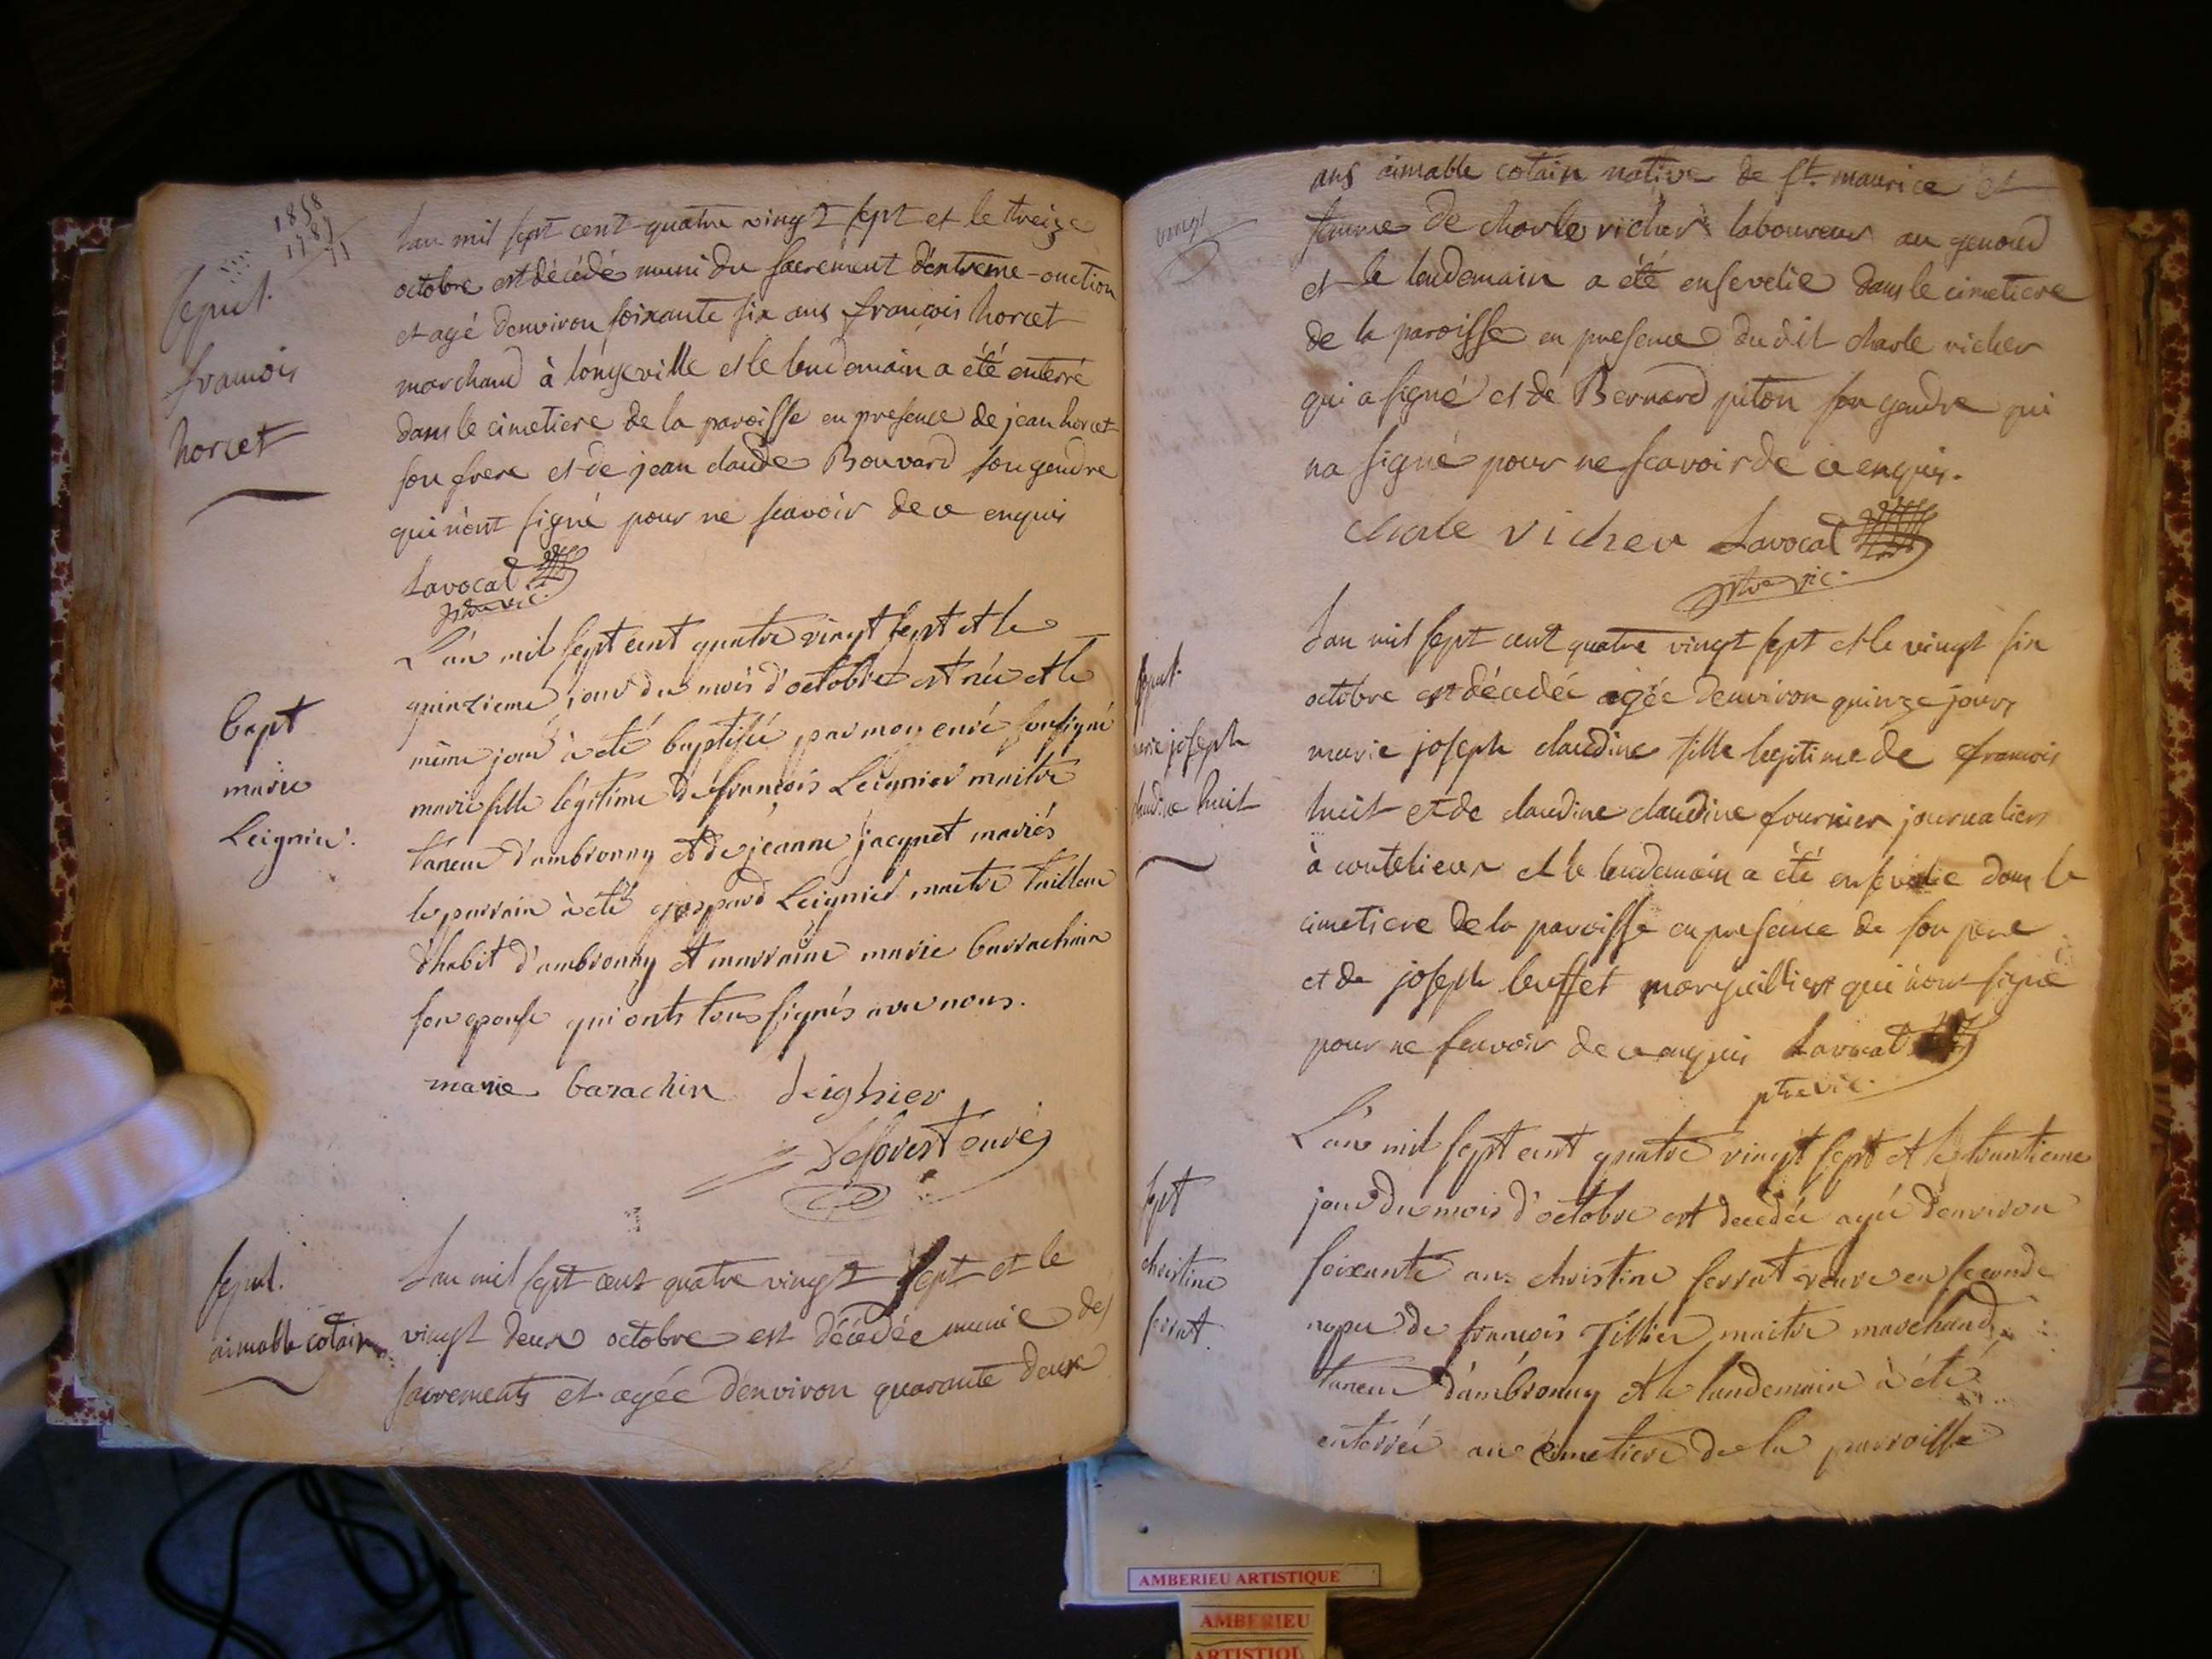 1858
1787
71
sepul.
francois
horcet
Lan mil sept cent quatre vingt sept et le treize
octobre est décédé muni du sacrement d'extreme-onction
et agé denviron soixante six ans françois horcet
marchand à longeville et le lendemain a été enterré
dans le cimetiere de la paroisse en presence de jean horcet
son frere et de jean claude Bouvard son gendre
qui n'ont signé pour ne scavoir de ce enquis
Lavocat
ptre vic.
bapt
marie
Leignier.
L'an mil sept cent quatre vingt sept et le
quinzieme jour du mois d'octobre est née et le
même jour à eté baptisée par moy curé soussigné
marie fille légitime de françois Leignier maitre
taneur d'ambronay et de jéanne jacquet mariés
le parrain à eté gaspard Leignier maitre tailleur
d'habit d'ambronay et marraine marie barrachin
son epouse qui onts tous signés avec nous.
marie barachin Leighier
Deforest curé
sepul.
aimable cotain
Lan mil sept cent quatre vingt sept et le
vingt deux octobre est décédée munie des
sacrements et agée denviron quarante deux
ans aimable cotain native de st. maurice et
femme de charle richer laboureur au genoud
et le lendemain a été ensevelie dans le cimetiere
de la paroisse en presence dudit charle richer
qui a signé et de Bernard piton son gendre qui
na signé pour ne scavoir de ce enquis.
charle richer Lavocat
ptre vic.
sepul.
marie joseph
claudine huit
Lan mil sept cent quatre vingt sept et le vingt six
octobre est décédée agée denviron quinze jours
marie joseph claudine fille legitime de francois
huit et de claudine claudine fournier journaliers
à coutelieux et le lendemain a été ensevelie dans le
cimetiere de la paroisse en presence de son pere
et de joseph buffet marguillier qui n'ont signé
pour ne scavoir de ce enquis Lavocat
ptre vic.
sept
christine
ferrat.
L'an mil sept cent quatre vingt sept et le trantieme
jour du mois d'octobre est decedée agée d'environ
soixante ans christine ferrat veuve en seconde
nopce de françois Tillier maitre marchand
taneur d'ambronay et le landemain à été
enterrée au cimetiere de la parroisse
AMBERIEU ARTISTIQUE
AMBERIEU
ARTISTIQU